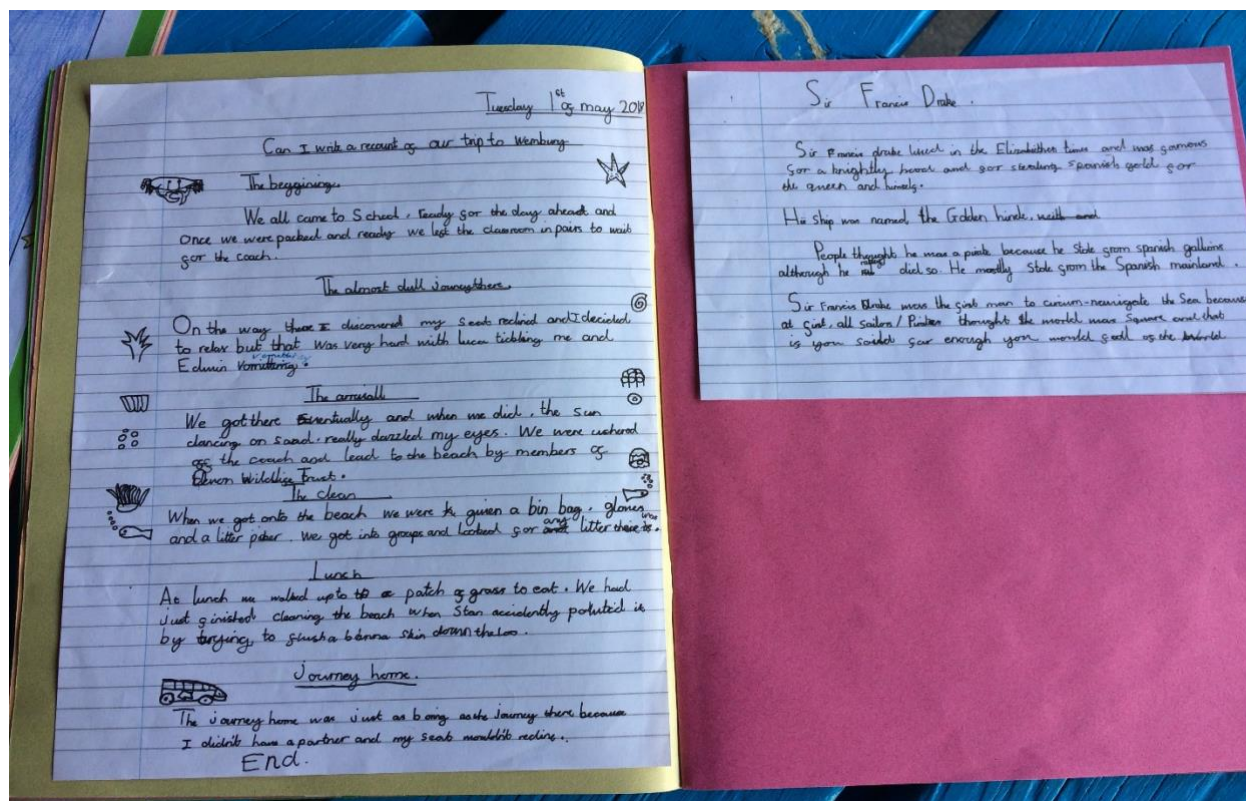 Tuesday 1st of may 2018
Can I write a recount of our trip to Wembury
The beggining.
We all came to School, ready for the day ahead and
once we were packed and ready we left the classroom in pairs to wait
for the coach.
The almost dull Journey there.
On the way there I discovered my seat reclined and I decided
to relax but that was very hard with luca tickling me and
Edwin vomitting.
The arrivall
We got there Eventually and when we did, the sun
dancing on sand really dazzled my eyes. We were ushered
off the coach and lead to the beach by members of
Devon Wildlife Trust.
The clean
When we got onto the beach we were given a bin bag, gloves
and a litter picker. We got into groups and looked for any litter there was.
Lunch
As lunch we walked up to a patch of grass to eat. We had
Just finished cleaning the beach when Stan accidently polluted it
by trying to flush a banna skin down the loo.
Journey home.
The journey home was Just as boing as the journey there because
I didn't have a partner and my seat wouldn't recline.
End.
Sir Francis Drake.
Sir Francis drake lived in the Elizabethan times and was famous
for a knightly hood and for stealing spanish gold for
the queen and himself.
His ship was named the Golden hinde. with and
People thought he was a pirate because he stole from spanish
although he did so. He mostly stole from the Spanish mainland.
Sir Francis Drake was the first man to circum-navigate the Sea because
at first, all sailors / Pirates thought the world was Square and that
if you far enough you would fall of the World